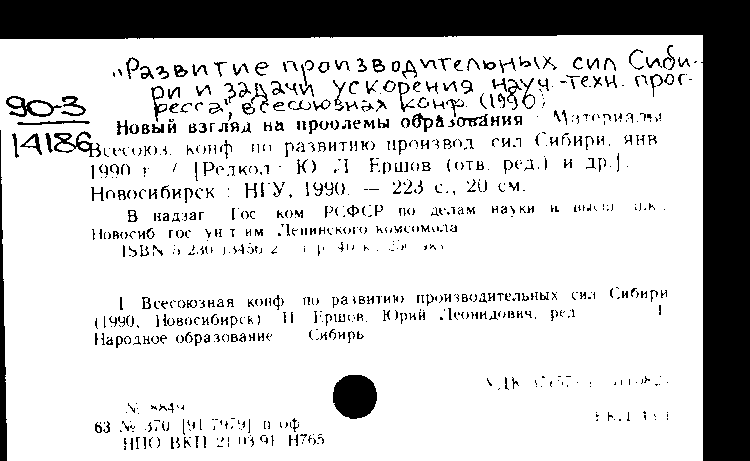 „Развитие производительных сил Сиби-
ри и задачи ускорения науч.-техн. прог-
ресса", всесоюзная конф. (1990)
90-3
14186
Новый взгляд на проблемы образования : Материалы
Всесоюз. конф. по развитию производ. сил Сибири, янв.
1990 г. / [Редкол.: Ю. Л. Ершов (отв. ред.) и др.].
Новосибирск : НГУ, 1990. — 223 с., 20 см.
В надзаг. Гос. ком. РСФСР по делам науки и высш. шк.,
Новосиб. гос. ун-т им. Ленинского комсомола
ISBN 5-230-13456-2
I. Всесоюзная конф. по развитию производительных сил Сибири
(1990, Новосибирск). II. Ершов, Юрий Леонидович, ред. 1.
Народное образование Сибирь
УДК
№ 8849
63 № 370 [91-7979] п оф
НПО ВКП 21.03.91 Н765